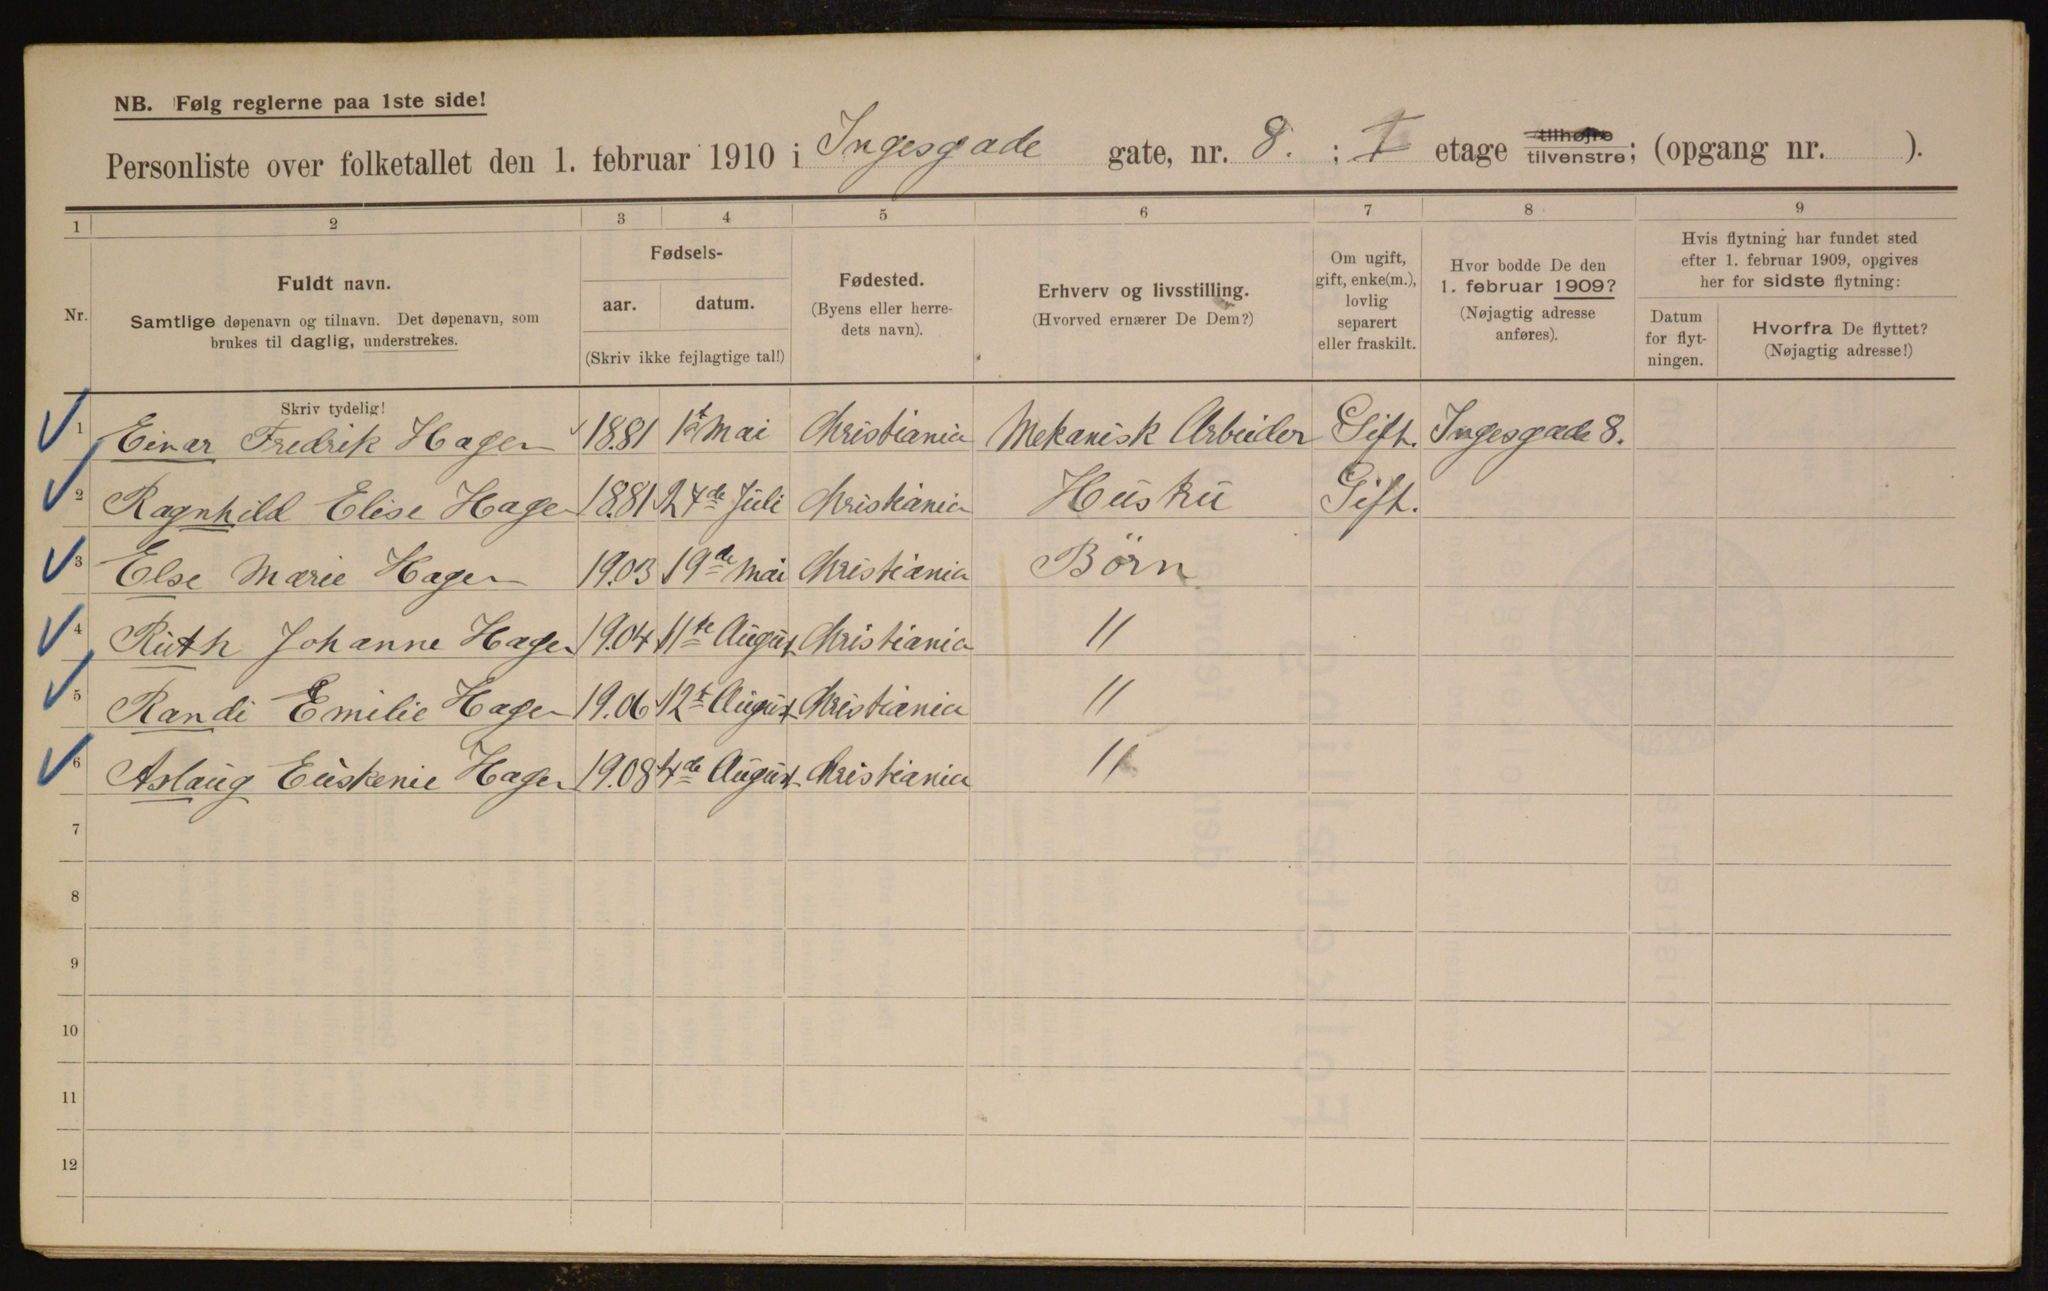 NB. Følg reglerne paa 1ste side!
Personliste over folketallet den 1. februar 1910 i Ingesgade gate, nr. 8. ; I etage tilhøjre tilvenstre; (opgang nr. ).
1 2 3 4 5 6 7 8 9
Nr.
Fuldt navn.
Samtlige døpenavn og tilnavn. Det døpenavn, som
brukes til daglig, understrekes.
Skriv tydelig!
Fødsels-
aar. datum.
(Skriv ikke fejlagtige tal!)
Fødested.
(Byens eller herre-
dets navn).
Erhverv og livsstilling.
(Hvorved ernærer De Dem?)
Om ugift,
gift, enke(m.),
lovlig
separert
eller fraskilt.
Hvor bodde De den
1. februar 1909?
(Nøjagtig adresse
anføres).
Hvis flytning har fundet sted
efter 1. februar 1909, opgives
her for sidste flytning:
Datum
for flyt-
ningen.
Hvorfra De flyttet?
(Nøjagtig adresse!)
1 Einar Fredrik Hagen 1881 1st Mai Christiania Mekanisk Arbeider Gift. Ingesgade 8.
2 Ragnhild Elise Hagen 1881 24de Juli Christiania Hustru Gift.
3 Else Marie Hagen 1903 19de Mai Christiania Börn
4 Ruth Johanne Hagen 1904 11te August Christiania "
5 Randi Emilie Hagen 1906 12t August Christiania "
6 Aslaug Euskenie Hagen 1908 4de August Christiania "
7
8
9
10
11
12